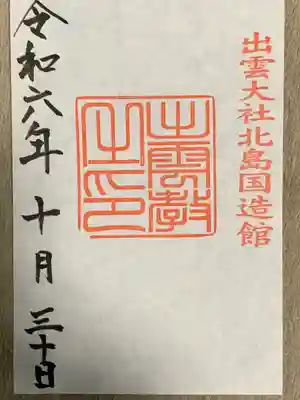 出雲大社北島国造館
出雲教
之印
令和六年 十月 三十日